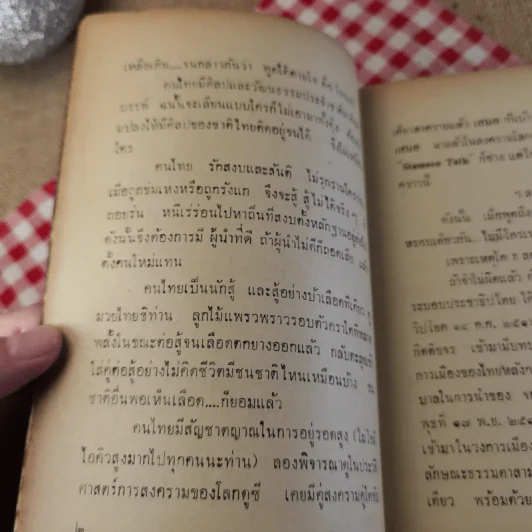 เหลือเกิน....จนกล่าวกันว่า พูดได้ตามใจ คือ
คนไทยมีศิลปและวัฒนธรรมประจำชาติ
บรรพ์ ฉนั้นจะเลียนแบบใครก็ไม่เอามาทั้งดุ้น
แปลงให้มีศิลปของชาติไทยติดอยู่จนได้
ใคร
คนไทย รักสงบและสันติ ไม่รุกรานใคร
เมื่อถูกข่มเหงหรือถูกรังแก จึงจะสู้ สู้ไม่ได้จริง ๆ
ถอยร่น หนีเร่ร่อนไปหาถิ่นที่สงบตั้งหลักฐานอยู่
ดังนั้นจึงต้องการมี ผู้นำที่ดี ถ้าผู้นำไม่ดีก็ถอดเสีย แล้ว
ตั้งคนใหม่แทน
คนไทยเป็นนักสู้ และสู้อย่างบ้าเลือดทีเดียว
มวยไทยซิท่าน ลูกไม้แพรวพราวรอบตัวคราใดที่
พลั้งในขณะต่อสู้จนเลือดตกยางออกแล้ว กลับตะลุย
ใส่คู่ต่อสู้อย่างไม่คิดชีวิตมีชนชาติไหนเหมือนบ้าง
ชาติอื่นพอเห็นเลือด....ก็ยอมแล้ว
คนไทยมีสัญชาตญาณในการอยู่รอดสูง (ไม่ใช่
ไอคิวสูงมากไปทุกคนนะท่าน) ลองพิจารณาดูในประวัติ
ศาสตร์การสงครามของโลกดูซี เคยมีคู่สงครามคู่ใด
๒
เคียวสงครามแล้ว เสมอ
เสมอ มาแล้วในสงครามโลก
"Siamese Talk" ก็
คราวนี้
ว.ส
ดังนั้น เมื่อพูดถึง
หรอบเดียวกัน..ไม่มีใคร
เพราะเหตุใด
ถ้าจำไม่ผิดแล้ว
ระบอบประชาธิปไตย ได้
วิปโยค ๑๔ ต.ค. ๒๕๑
กิตติขจร เข้ามามีบท
การเมืองของไทยหลัง
บาลในการนำของ จอ
พุธที่ ๑๗ พ.ย. ๒๕๑
เข้ามาในวงการเมือง
ลักษณะธรรมดาสาม
เดียว พร้อมด้วย